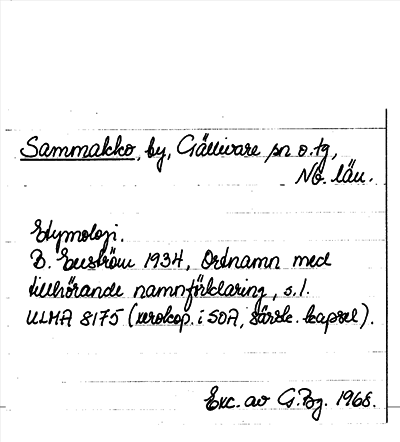 Sammakko, by, Gällivare sn o. tg,
Nb. län.
Etymologi.
B. Enström 1934, Ortnamn med
tillhörande namnförklaring, s. 1.
ULMA 8175 (xerokop. i SOA, särsk. kapsel).
Exc. av G. Bg. 1968.